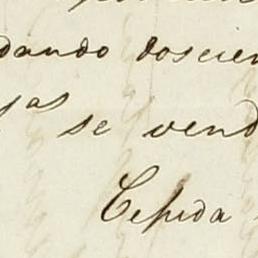 dando doscien
s.as se vend
Cepeda